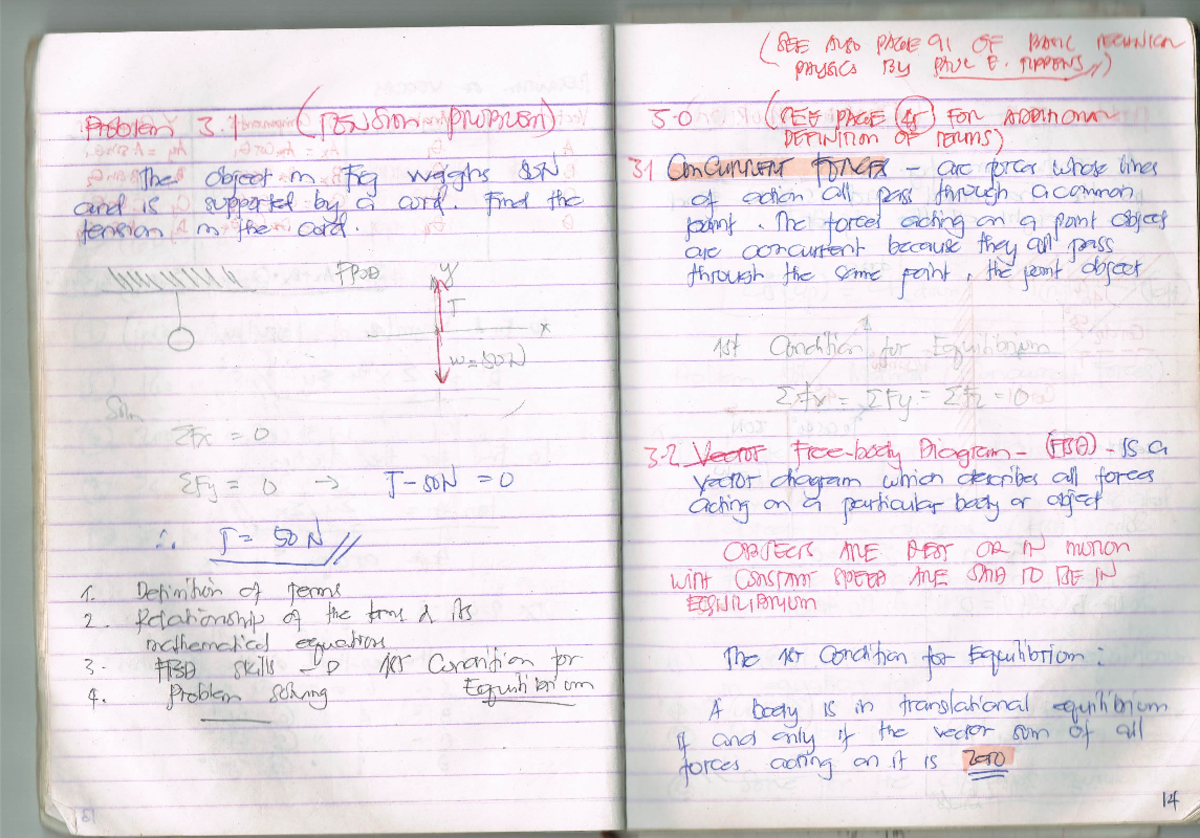 Problem 3.1 (TENSION PROBLEM)
The object in Fig weighs 50N
and is supported by a cord. Find the
tension in the cord.
FBD
y
T
x
w = 50N
Soln
ΣFx = 0
ΣFy = 0 → T - 50N = 0
∴ T = 50N //
1. Definition of terms
2. Relationship of the terms & its
mathematical equations
3. FBD skills → 1st Condition for
Equilibrium
4. Problem solving
(SEE ALSO PAGE 91 OF BASIC TECHNICAL
PHYSICS BY PAUL E. TIPPENS //)
3.0 (SEE PAGE FOR ADDITIONAL
DEFINITION OF TERMS)
3.1 CONCURRENT FORCES - are forces whose lines
of action all pass through a common
point. The forces acting on a point object
are concurrent because they all pass
through the same point, the point object
1st Condition for Equilibrium
ΣFx = ΣFy = ΣFz = 0
3.2 Vector Free-body Diagram - (FBD) - is a
vector diagram which describes all forces
acting on a particular body or object
OBJECTS ARE REST OR IN MOTION
WITH CONSTANT SPEED ARE SAID TO BE IN
EQUILIBRIUM
The 1st Condition for Equilibrium :
A body is in translational equilibrium
if and only if the vector sum of all
forces acting on it is Zero
14